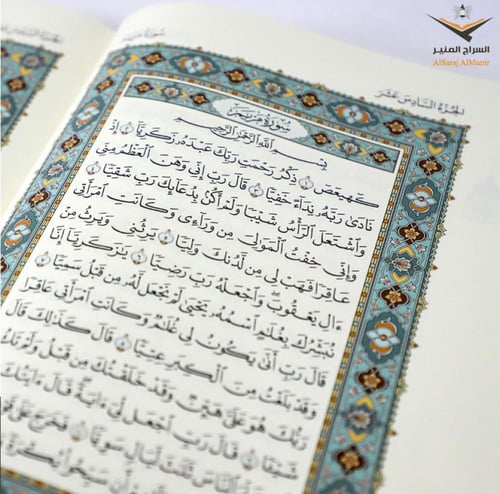 السراج المنير
AlSaraj AlMunir
الجزء السادس عشر
سورة مريم
سُورَةُ مَرْيَمَ
بِسْمِ اللَّهِ الرَّحْمَٰنِ الرَّحِيمِ
كٓهيعٓصٓ ١ ذِكْرُ رَحْمَتِ رَبِّكَ عَبْدَهُۥ زَكَرِيَّآ ٢ إِذْ
نَادَىٰ رَبَّهُۥ نِدَآءً خَفِيًّا ٣ قَالَ رَبِّ إِنِّى وَهَنَ ٱلْعَظْمُ مِنِّى
وَٱشْتَعَلَ ٱلرَّأْسُ شَيْبًا وَلَمْ أَكُنۢ بِدُعَآئِكَ رَبِّ شَقِيًّا ٤
وَإِنِّى خِفْتُ ٱلْمَوَٰلِىَ مِن وَرَآءِى وَكَانَتِ ٱمْرَأَتِى
عَاقِرًا فَهَبْ لِى مِن لَّدُنكَ وَلِيًّا ٥ يَرِثُنِى وَيَرِثُ مِنْ
ءَالِ يَعْقُوبَ وَٱجْعَلْهُ رَبِّ رَضِيًّا ٦ يَٰزَكَرِيَّآ إِنَّا
نُبَشِّرُكَ بِغُلَٰمٍ ٱسْمُهُۥ يَحْيَىٰ لَمْ نَجْعَل لَّهُۥ مِن قَبْلُ سَمِيًّا ٧
قَالَ رَبِّ أَنَّىٰ يَكُونُ لِى غُلَٰمٌ وَكَانَتِ ٱمْرَأَتِى عَاقِرًا
وَقَدْ بَلَغْتُ مِنَ ٱلْكِبَرِ عِتِيًّا ٨ قَالَ كَذَٰلِكَ قَالَ
رَبُّكَ هُوَ عَلَىَّ هَيِّنٌ وَقَدْ خَلَقْتُكَ مِن قَبْلُ وَلَمْ تَكُ
شَيْـًٔا ٩ قَالَ رَبِّ ٱجْعَل لِّىٓ ءَايَةً قَالَ ءَايَتُكَ
ٱلنَّاسَ ثَلَٰثَ لَيَالٍ سَوِيًّا ١٠ فَخَرَجَ عَلَىٰ
أَن سَبِّحُوا۟ بُكْرَةً